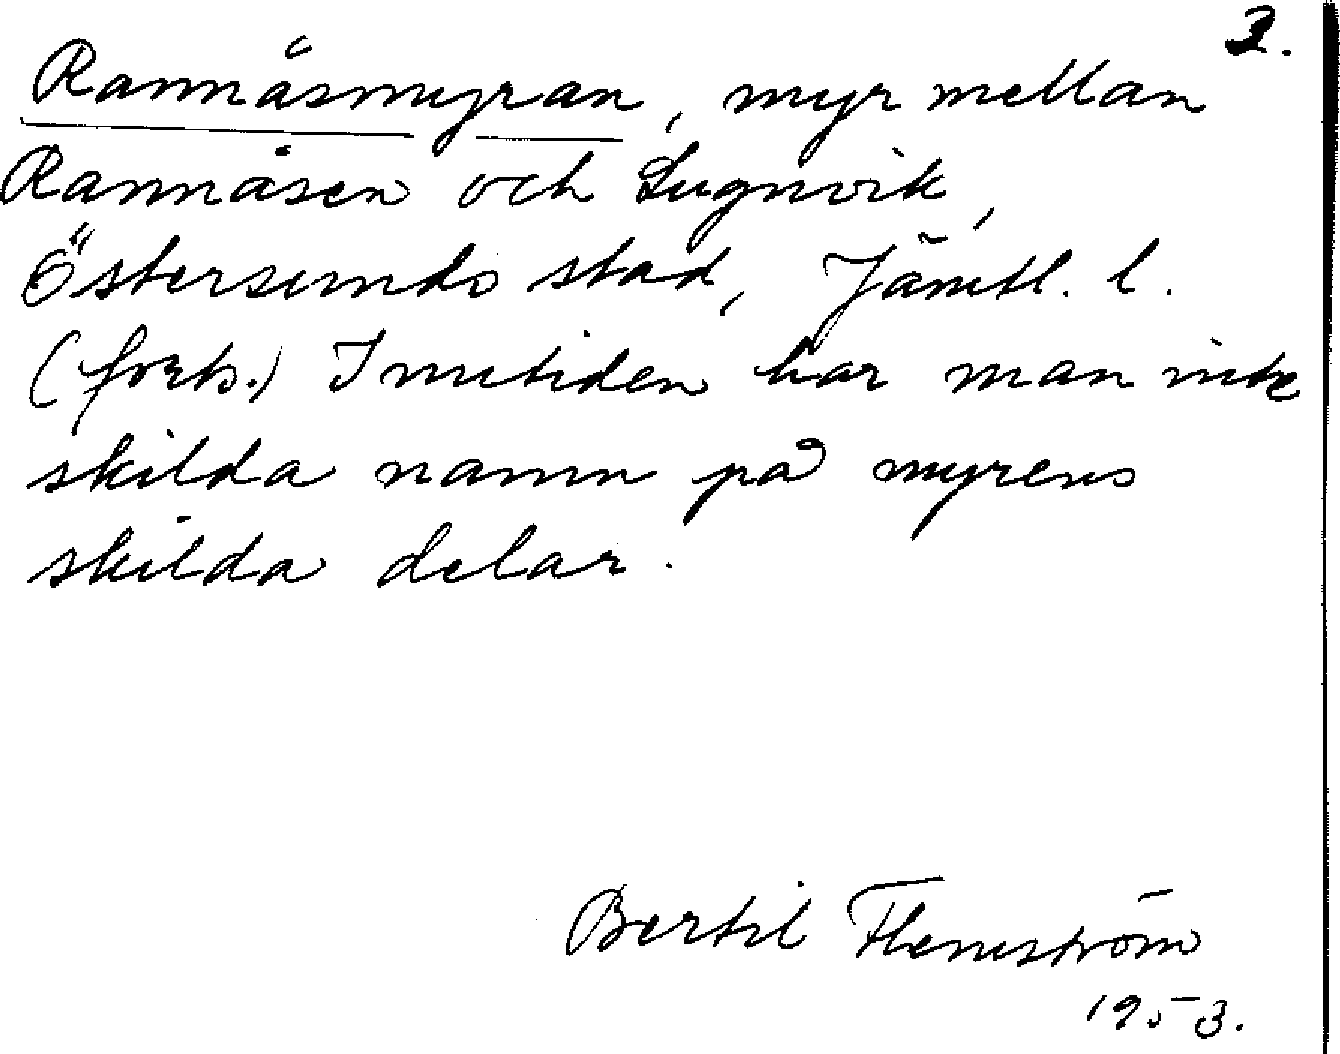 3.
Rannåsmyran, myr mellan
Rannåsen och Lugnvik,
Östersunds stad, Jämtl. l.
(forts.) I nutiden har man inte
skilda namn på myrens
skilda delar.
Bertil Flemström
1953.